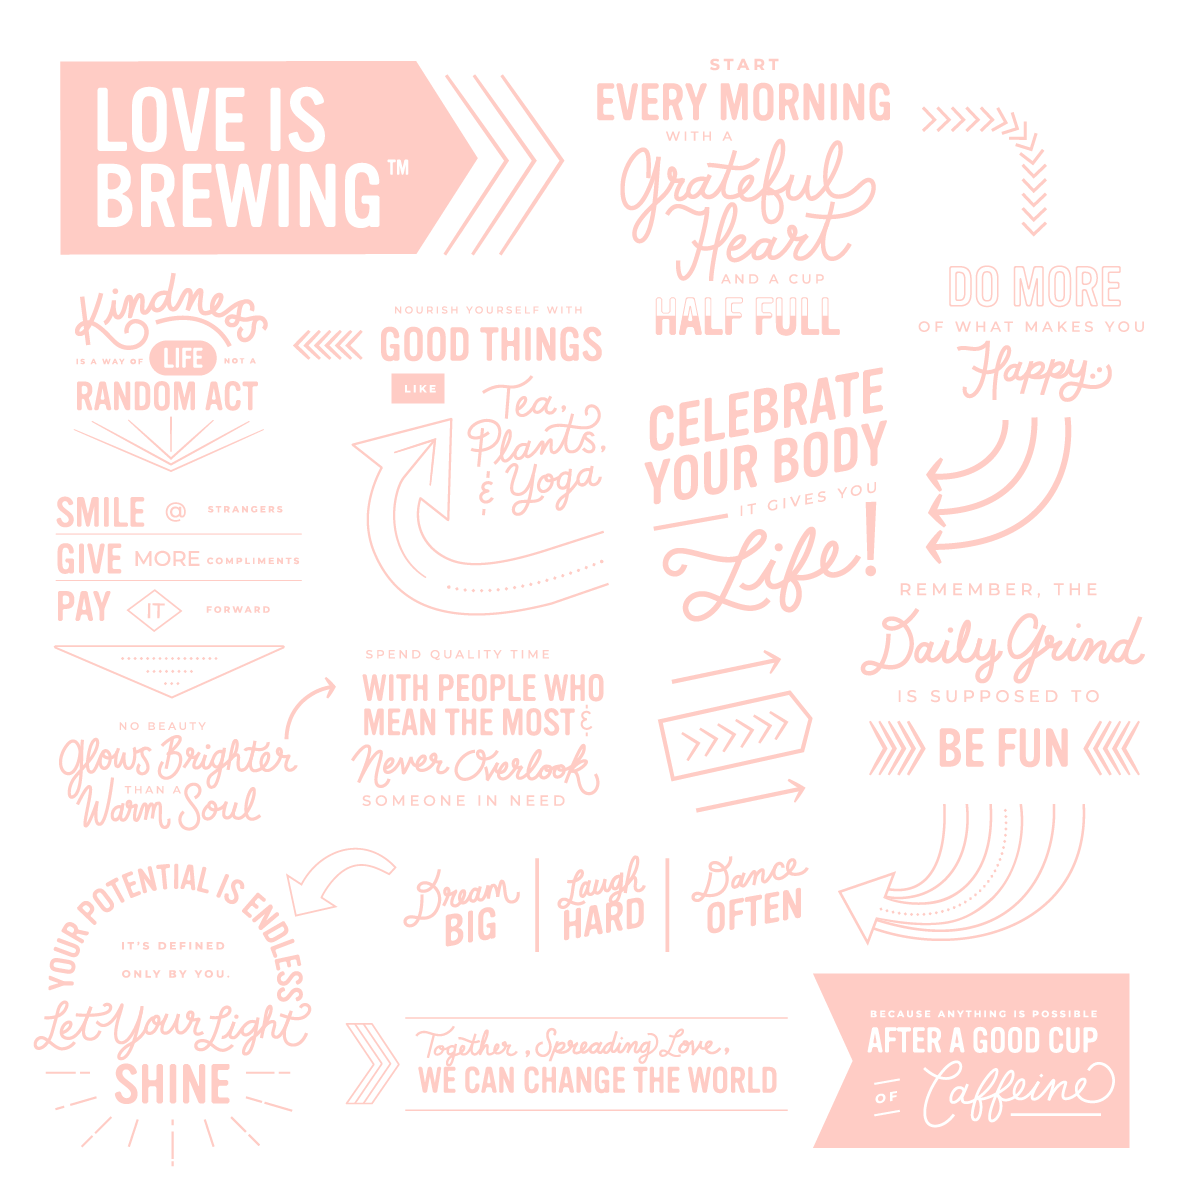 LOVE IS
BREWING™
START
EVERY MORNING
WITH A
Grateful
Heart
AND A CUP
HALF FULL
DO MORE
OF WHAT MAKES YOU
Happy
Kindness
IS A WAY OF LIFE NOT A
RANDOM ACT
NOURISH YOURSELF WITH
GOOD THINGS
LIKE
Tea,
Plants,
& Yoga
CELEBRATE
YOUR BODY
IT GIVES YOU
Life!
SMILE @ STRANGERS
GIVE MORE COMPLIMENTS
PAY IT FORWARD
REMEMBER, THE
Daily Grind
IS SUPPOSED TO
BE FUN
SPEND QUALITY TIME
WITH PEOPLE WHO
MEAN THE MOST &
Never Overlook
SOMEONE IN NEED
NO BEAUTY
Glows Brighter
THAN A
Warm Soul
YOUR POTENTIAL IS ENDLESS
IT'S DEFINED
ONLY BY YOU.
Let Your Light
SHINE
Dream
BIG
Laugh
HARD
Dance
OFTEN
Together, Spreading Love,
WE CAN CHANGE THE WORLD
BECAUSE ANYTHING IS POSSIBLE
AFTER A GOOD CUP
OF Caffeine